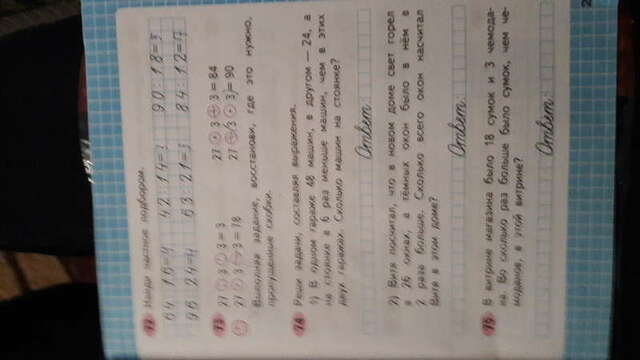 72 Найди частное подбором.
64 : 16=4 42 : 14=3 90 : 18=5
96 : 24=4 63 : 21=3 84 : 12=7
73 27 : 3 : 3 = 3 27 · 3 + 3 = 84
27 · 3 − 3 = 78 27 · 3 + 3) = 90
Выполняя задание, восстанови, где это нужно,
пропущенные скобки.
74 Реши задачи, составляя выражения.
1) В одном гараже 48 машин, в другом — 24, а
на стоянке в 6 раз меньше машин, чем в этих
двух гаражах. Сколько машин на стоянке?
Ответ:
2) Витя посчитал, что в новом доме свет горел
в 26 окнах, а тёмных окон было в нём в
2 раза больше. Сколько всего окон насчитал
Витя в этом доме?
Ответ:
75 В витрине магазина было 18 сумок и 3 чемода-
на. Во сколько раз больше было сумок, чем че-
моданов, в этой витрине?
Ответ:
2